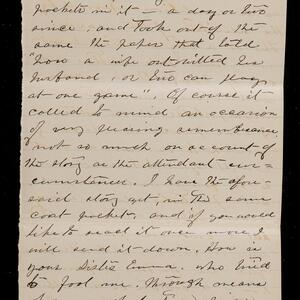 pockets in it – a day or two
since, and took out of the
same the paper that told
"How a wife out-witted her
husband, or two can play
at one game". Of course it
called to mind an occasion
of very pleasing remembrance,
not so much on account of
the story as the attendant cir-
cumstances. I have the afore-
said story yet, in the same
coat pocket, and if you would
like to read it over more I
will send it down. How is
your Sister Emma, who tried
to fool me. Through means